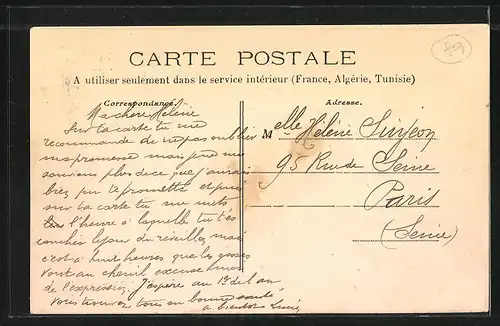 CARTE POSTALE
A utiliser seulement dans le service intérieur (France, Algérie, Tunisie)
Correspondance
Ma chère Hélène
Sur la carte tu me
recommande de ne pas oublier
ma promesse mais je ne me
souviens plus de ce que j'avais
bien pu te promettre et puis
sur la carte tu me mets
l'heure à laquelle tu t'es
couchée le jour du réveillon mais
c'est à huit heures que les gosses
vont au chenil excuse moi
de l'expression. J'espère au 1er de l'an
vous trouver tous en bonne santé
à bientôt
Adresse.
Melle Hélène Simeon
95 Rue de Seine
Paris
(Seine)